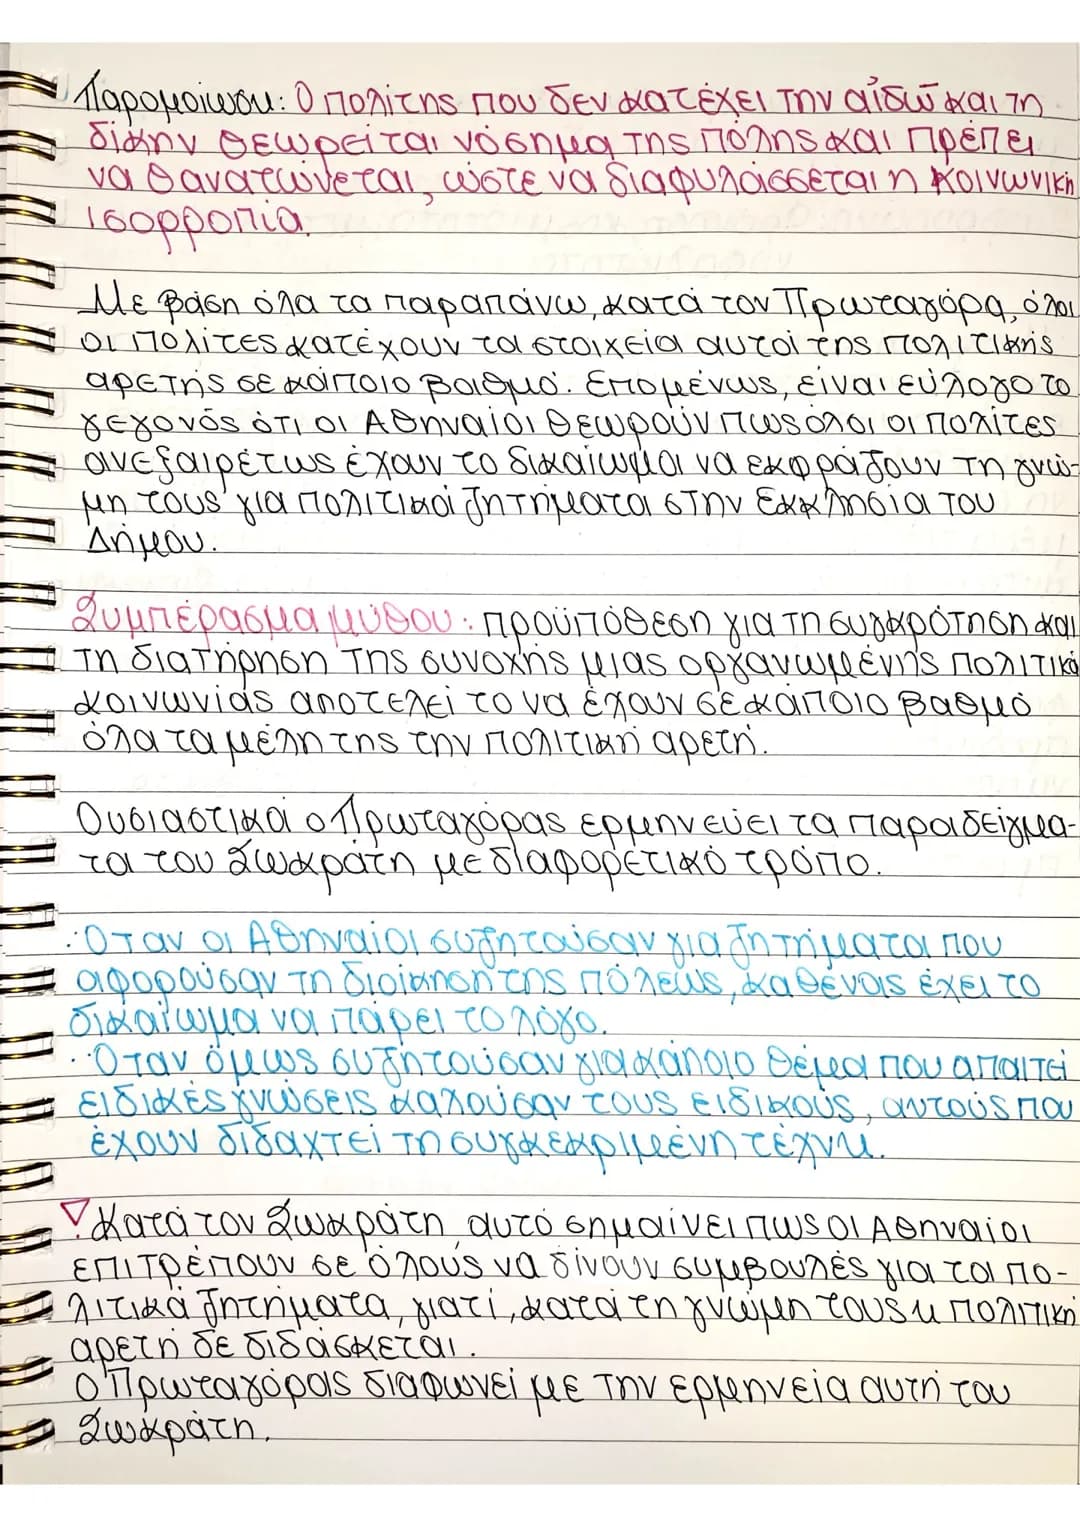 Παρομοίωση: Ο πολίτης που δεν κατέχει την αἰδῶ και τη
δίκην θεωρείται νόσημα της πόλης και πρέπει
να θανατώνεται, ώστε να διαφυλάσσεται η κοινωνική
ισορροπία.
Με βάση όλα τα παραπάνω, κατά τον Πρωταγόρα, όλοι
οι πολίτες κατέχουν τα στοιχεία αυτά της πολιτικής
αρετής σε κάποιο βαθμό. Επομένως, είναι εύλογο το
γεγονός ότι οι Αθηναίοι θεωρούν πως όλοι οι πολίτες
ανεξαιρέτως έχουν το δικαίωμα να εκφράζουν τη γνώ-
μη τους για πολιτικά ζητήματα στην Εκκλησία του
Δήμου.
Συμπέρασμα μύθου: προϋπόθεση για τη συγκρότηση και
τη διατήρηση της συνοχής μιας οργανωμένης πολιτικά
κοινωνίας αποτελεί το να έχουν σε κάποιο βαθμό
όλα τα μέλη της την πολιτική αρετή.
Ουσιαστικά ο Πρωταγόρας ερμηνεύει τα παραδείγμα-
τα του Σωκράτη με διαφορετικό τρόπο.
·Όταν οι Αθηναίοι συζητούσαν για ζητήματα που
αφορούσαν τη διοίκηση της πόλεως, καθένας έχει το
δικαίωμα να πάρει το λόγο.
·Όταν όμως συζητούσαν για κάποιο θέμα που απαιτεί
ειδικές γνώσεις καλούσαν τους ειδικούς, αυτούς που
έχουν διδαχτεί τη συγκεκριμένη τέχνη.
Κατά τον Σωκράτη αυτό σημαίνει πως οι Αθηναίοι
επιτρέπουν σε όλους να δίνουν συμβουλές για τα πο-
λιτικά ζητήματα, γιατί, κατά τη γνώμη τους η πολιτική
αρετή δε διδάσκεται.
Ο Πρωταγόρας διαφωνεί με την ερμηνεία αυτή του
Σωκράτη.